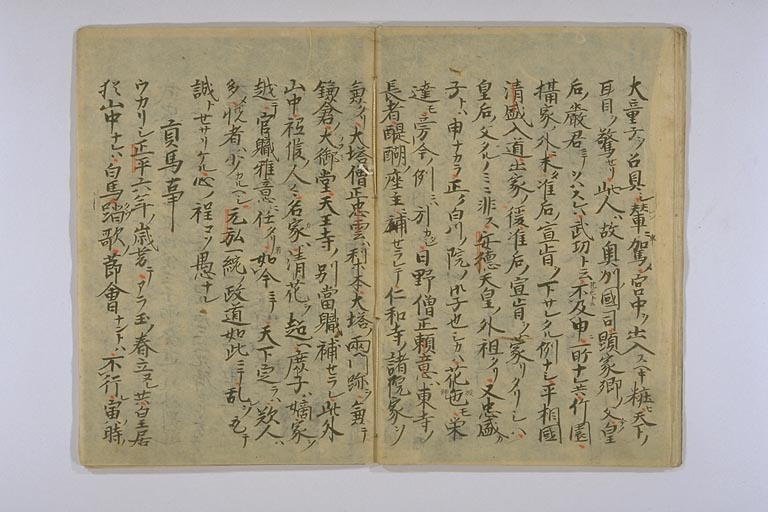 大童子ヲ召具シ輦ニ駕メ宮中ヲ出入ス其粧天下ノ
耳目ヲ驚セリ此人ハ故奥州ノ國司顕家卿ノ父皇
后ノ嚴君ニテ武功ト云不及申所ナレ共竹園
構家ノ外未准后ノ宣旨ヲ下サレタル例ナシ平相國
清盛入道出家ノ後准后ノ宣旨ヲ蒙リタリシハ
皇后ノ父タルノミニ非ス安徳天皇ノ外祖タリ又忠盛カ
子トハ申ナカラ正ク白川ノ院ノ御子也シカハ花族モ栄
達モ今ノ例ニ引カタシ日野僧正頼意ハ東寺ノ
長者醍醐座主ニ補セラレテ仁和寺諸院家ヲ
兼タリ大塔僧正忠雲ハ梨本大塔ノ両門跡ヲ兼テ
鎌倉ノ大御堂天王寺ノ別當職ニ補セラル此外
山中祗候ノ人々名家ハ清花ヲ超庶子ハ嫡家ヲ
越テ官職雅意ニ任タリ如今ニテ天下定ラハ歎人ハ
多悦者ハ少カルヘシ元弘一統政道如此ニテ乱シヲ
誠トセサリケル心ノ程コソ愚ナレ
貢馬事
ウカリシ正平六年ノ歳暮テアラ玉ノ春立ヌレ共皇居
猶山中ナレハ白馬踏歌ノ節會ナントハ不行寅ノ時ノ